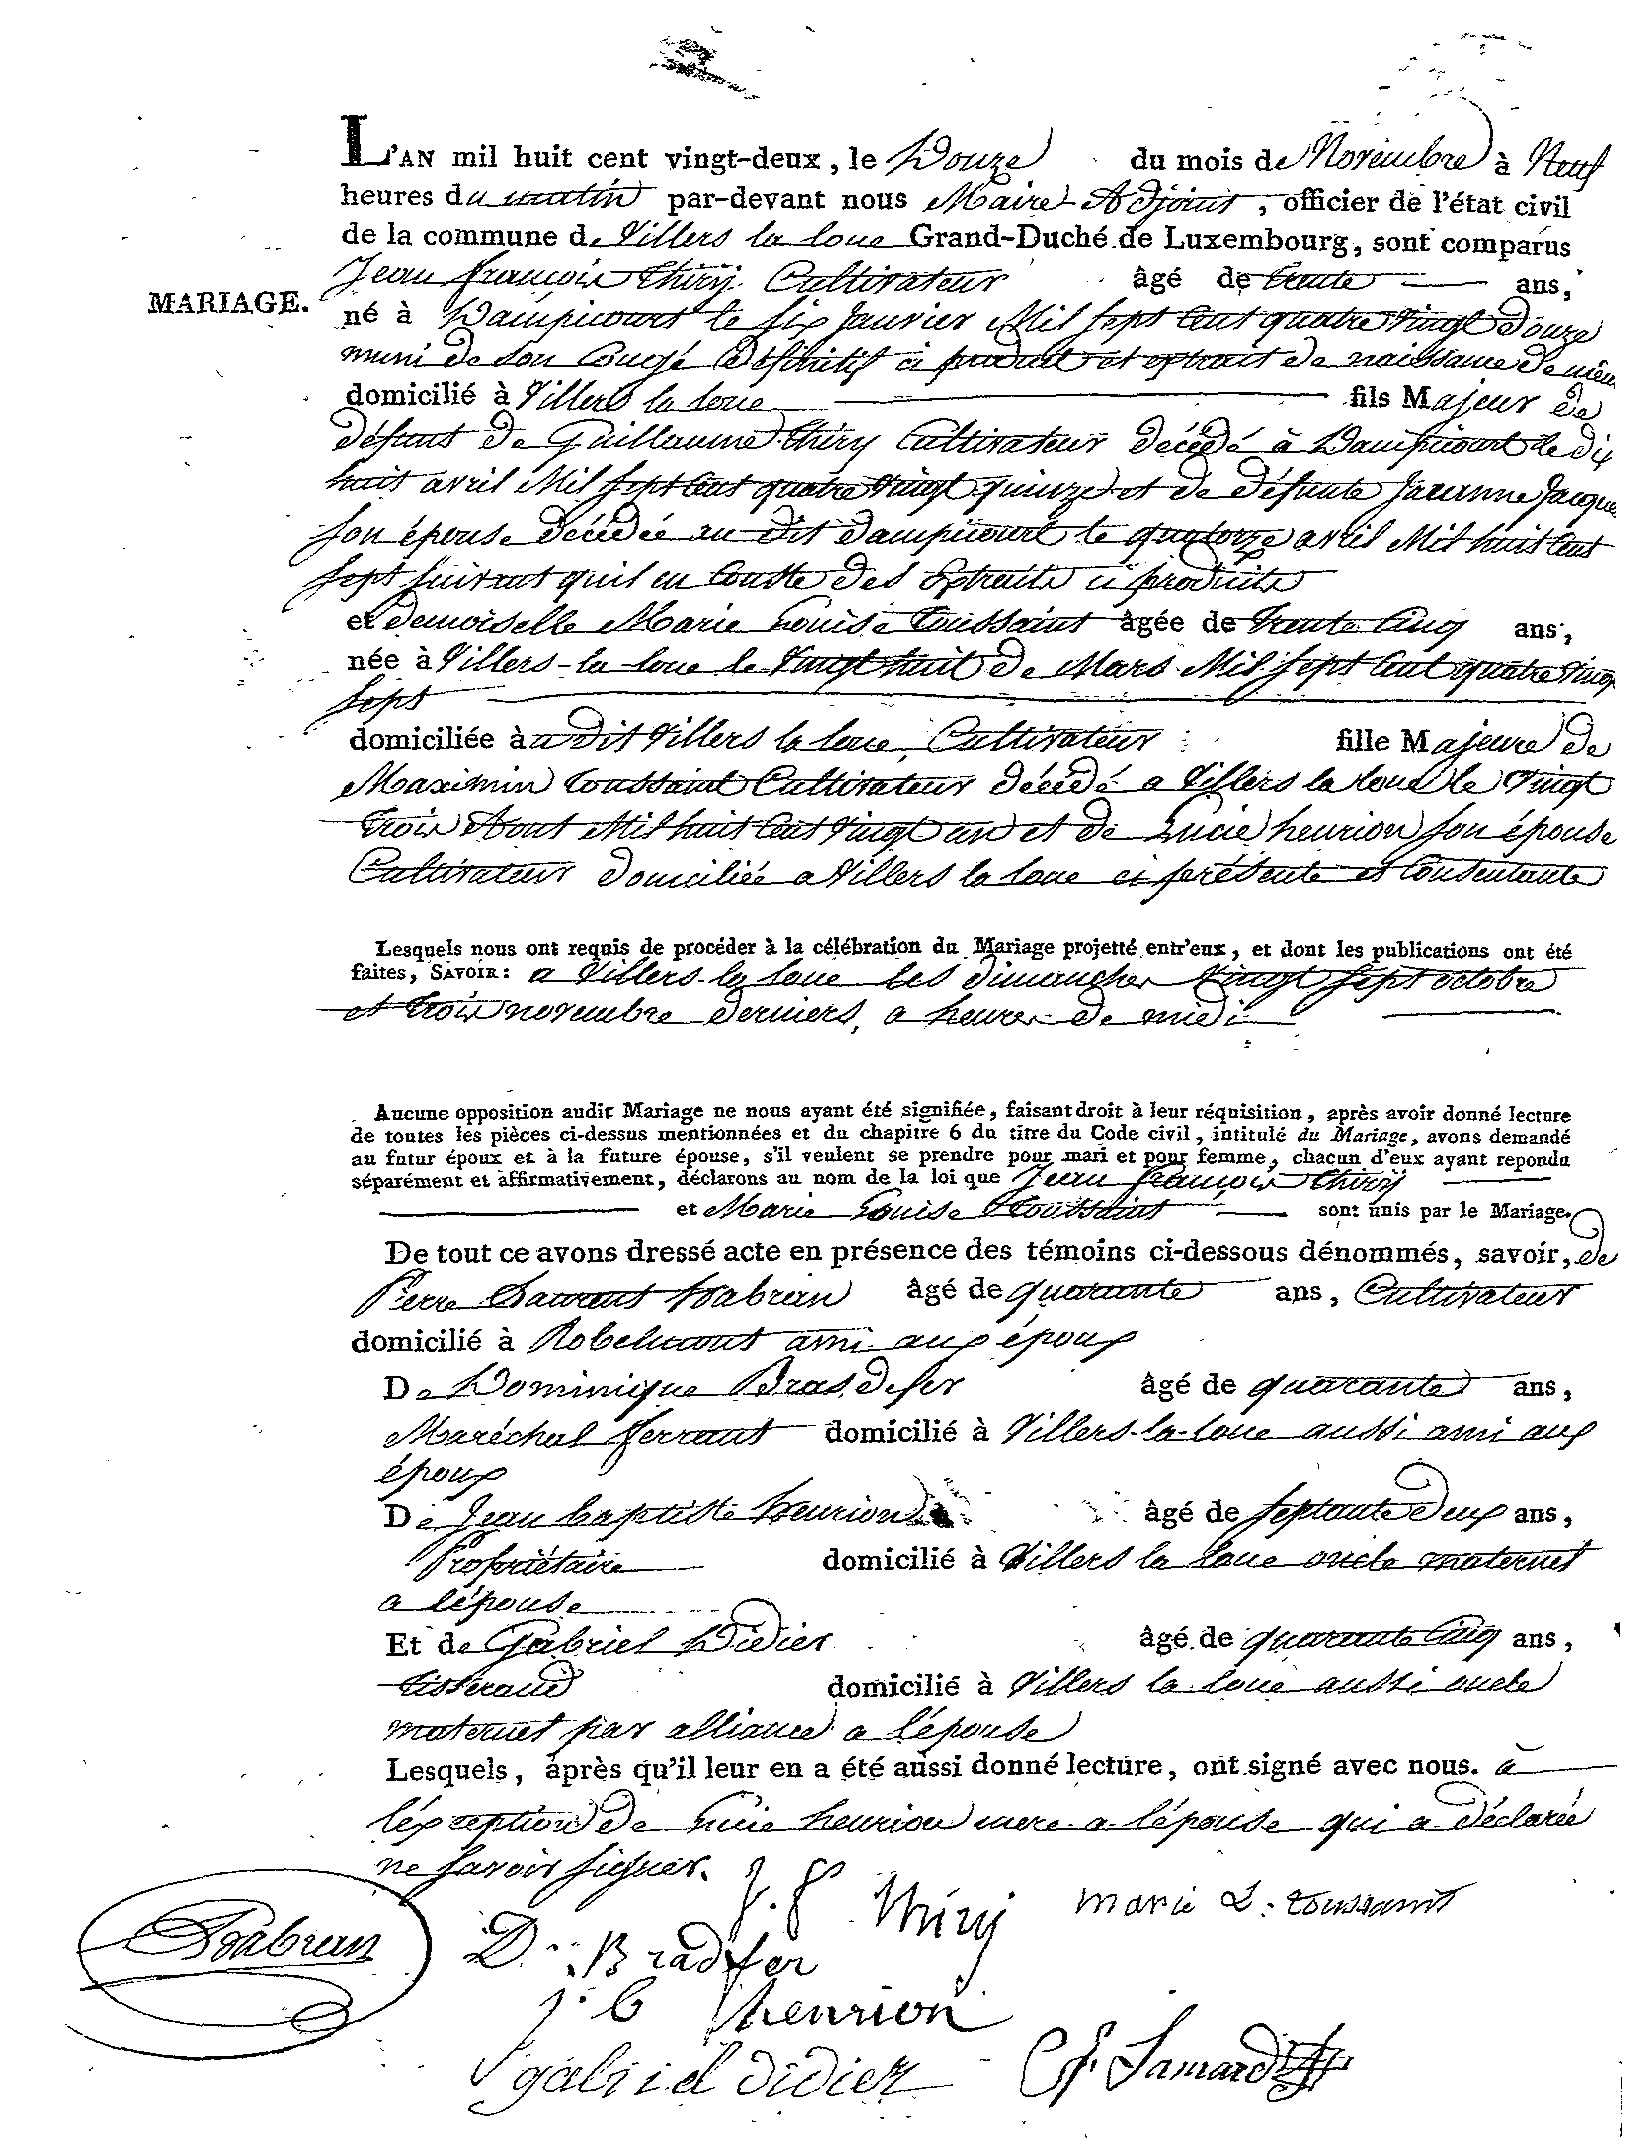 L'AN mil huit cent vingt-deux, le Douze du mois de Novembre à Neuf
heures du matin par-devant nous Maire Adjoint, officier de l'état civil
de la commune de Villers la loue Grand-Duché de Luxembourg, sont comparus
Jean françois Thiry Cultivateur âgé de trente ans,
MARIAGE.
né à Dampicourt le six Janvier Mil sept Cent quatre Vingt Douze
muni de son Congé Définitif ci produit et extrait de naissance de mêm
domicilié à Villers la loue fils Majeur de
défunt de Guillaume Thiry Cultivateur décédé à Dampicourt le dix
huit avril Mil sept Cent quatre Vingt quinze et de défunte Jeanne Jacque
son épouse décédée au dit dampicourt le quatorze avril Mil huit Cent
sept suivant quil en Conste des Extraits ci produits
et demoiselle Marie Louise Toussaint âgée de trente Cinq ans,
née à Villers-la loue le Vingt huit de Mars Mil sept Cent quatre Vingt
sept
domiciliée au dit Villers la loue, Cultivateur fille Majeure de
Maximin Toussaint Cultivateur décédé a Villers la loue le Vingt
trois Aout Mil huit Cent Vingt un et de Lucie henrion son épouse
Cultivateur domiciliée a Villers la loue ci présente et Consentante
Lesquels nous ont requis de procéder à la célébration du Mariage projetté entr'eux, et dont les publications ont été
faites, SAVOIR: a Villers-la loue les dimanches Vingt sept octobre
et trois novembre derniers, a heure de midi
Aucune opposition audit Mariage ne nous ayant été signifiée, faisant droit à leur réquisition, après avoir donné lecture
de toutes les pièces ci-dessus mentionnées et du chapitre 6 du titre du Code civil, intitulé du Mariage, avons demandé
au futur époux et à la future épouse, s'il veulent se prendre pour mari et pour femme, chacun d'eux ayant repondu
séparément et affirmativement, déclarons au nom de la loi que Jean françois Thiry
et Marie Louise Toussaint sont unis par le Mariage.
De tout ce avons dressé acte en présence des témoins ci-dessous dénommés, savoir, de
Pierre Laurent habran âgé de quarante ans, Cultivateur
domicilié à Robelmont ami aux époux
De Dominique Bras defer âgé de quarante ans,
Maréchal ferrant domicilié à Villers-la-loue aussi ami aux
époux
De Jean baptiste henrion âgé de septante deux ans,
Propriétaire domicilié à Villers la loue oncle maternel
a l'épouse
Et de Gabriel Didier âgé de quarante Cinq ans,
tisserand domicilié à Villers la loue aussi oncle
maternel par alliance a l'épouse
Lesquels, après qu'il leur en a été aussi donné lecture, ont signé avec nous. a
l'exception de Lucie henrion mere a l'épouse qui a déclarée
ne savoir signer.
J. f Thiry marie L: toussaint
habran D. Bradfer
j. b henrion
gabriel didier J. Lamard